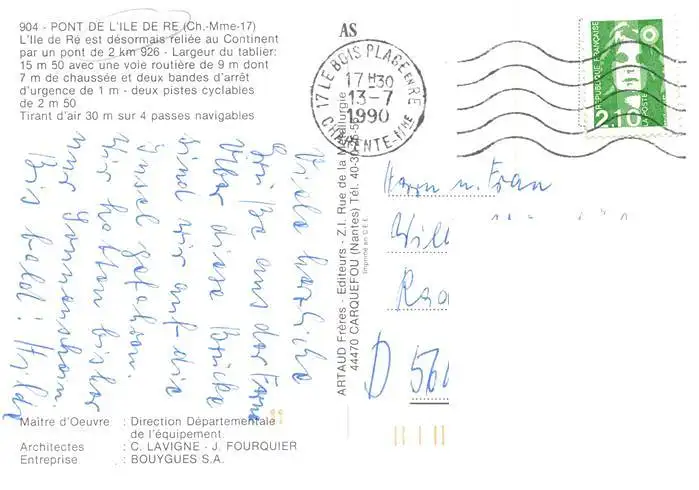 904 - PONT DE L'ILE DE RE (Ch.-Mme-17)
L'Ile de Ré est désormais reliée au Continent
par un pont de 2 km 926 - Largeur du tablier:
15 m 50 avec une voie routière de 9 m dont
7 m de chaussée et deux bandes d'arrêt
d'urgence de 1 m - deux pistes cyclables
de 2 m 50
Tirant d'air 30 m sur 4 passes navigables
AS
17 LE BOIS PLAGE EN RE
17H30
13-7
1990
CHARENTE-MME
REPUBLIQUE FRANÇAISE
LA POSTE
2,10
Viele herzliche
Grüße aus der Ferne
Über diese Brücke
sind wir auf die
Insel gefahren.
Wir hatten bisher
nur Sonnenschein.
Bis bald! Hilde
ARTAUD Frères - Editeurs - Z.I. Rue de la Métallurgie
44470 CARQUEFOU (Nantes) Tél. 40-30-
Imprimé en C.E.E.
Herrn u. Frau
Will
Raa
D 56
Maître d'Oeuvre : Direction Départementale
de l'équipement
Architectes : C. LAVIGNE - J. FOURQUIER
Entreprise : BOUYGUES S.A.